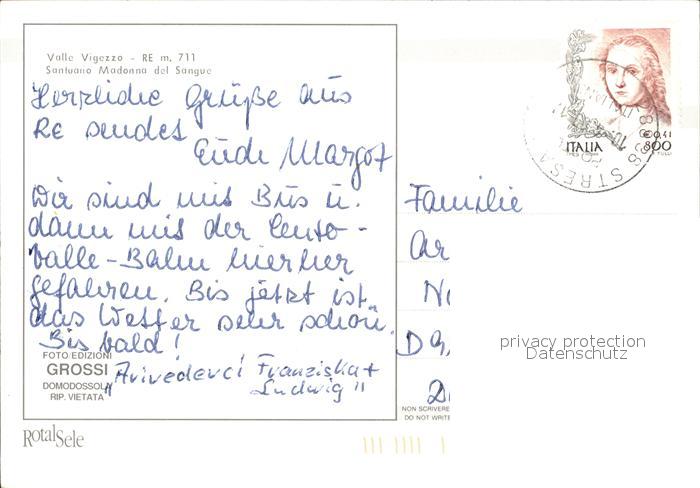 Valle Vigezzo - RE m. 711
Santuario Madonna del Sangue
Herzliche Grüße aus
Re sendet
Eude Margot
Wir sind mit Bus u.
dann mit der Cento-
valle-Bahn hierher
gefahren. Bis jetzt ist
das Wetter sehr schön.
Bis bald!
"Arivederci Franziska +
Ludwig"
FOTO EDIZIONI
GROSSI
DOMODOSSOLA
RIP. VIETATA
RotalSele
ITALIA
€0,41
800
STRESA
Familie
Ar
D
privacy protection
Datenschutz
NON SCRIVERE
DO NOT WRITE